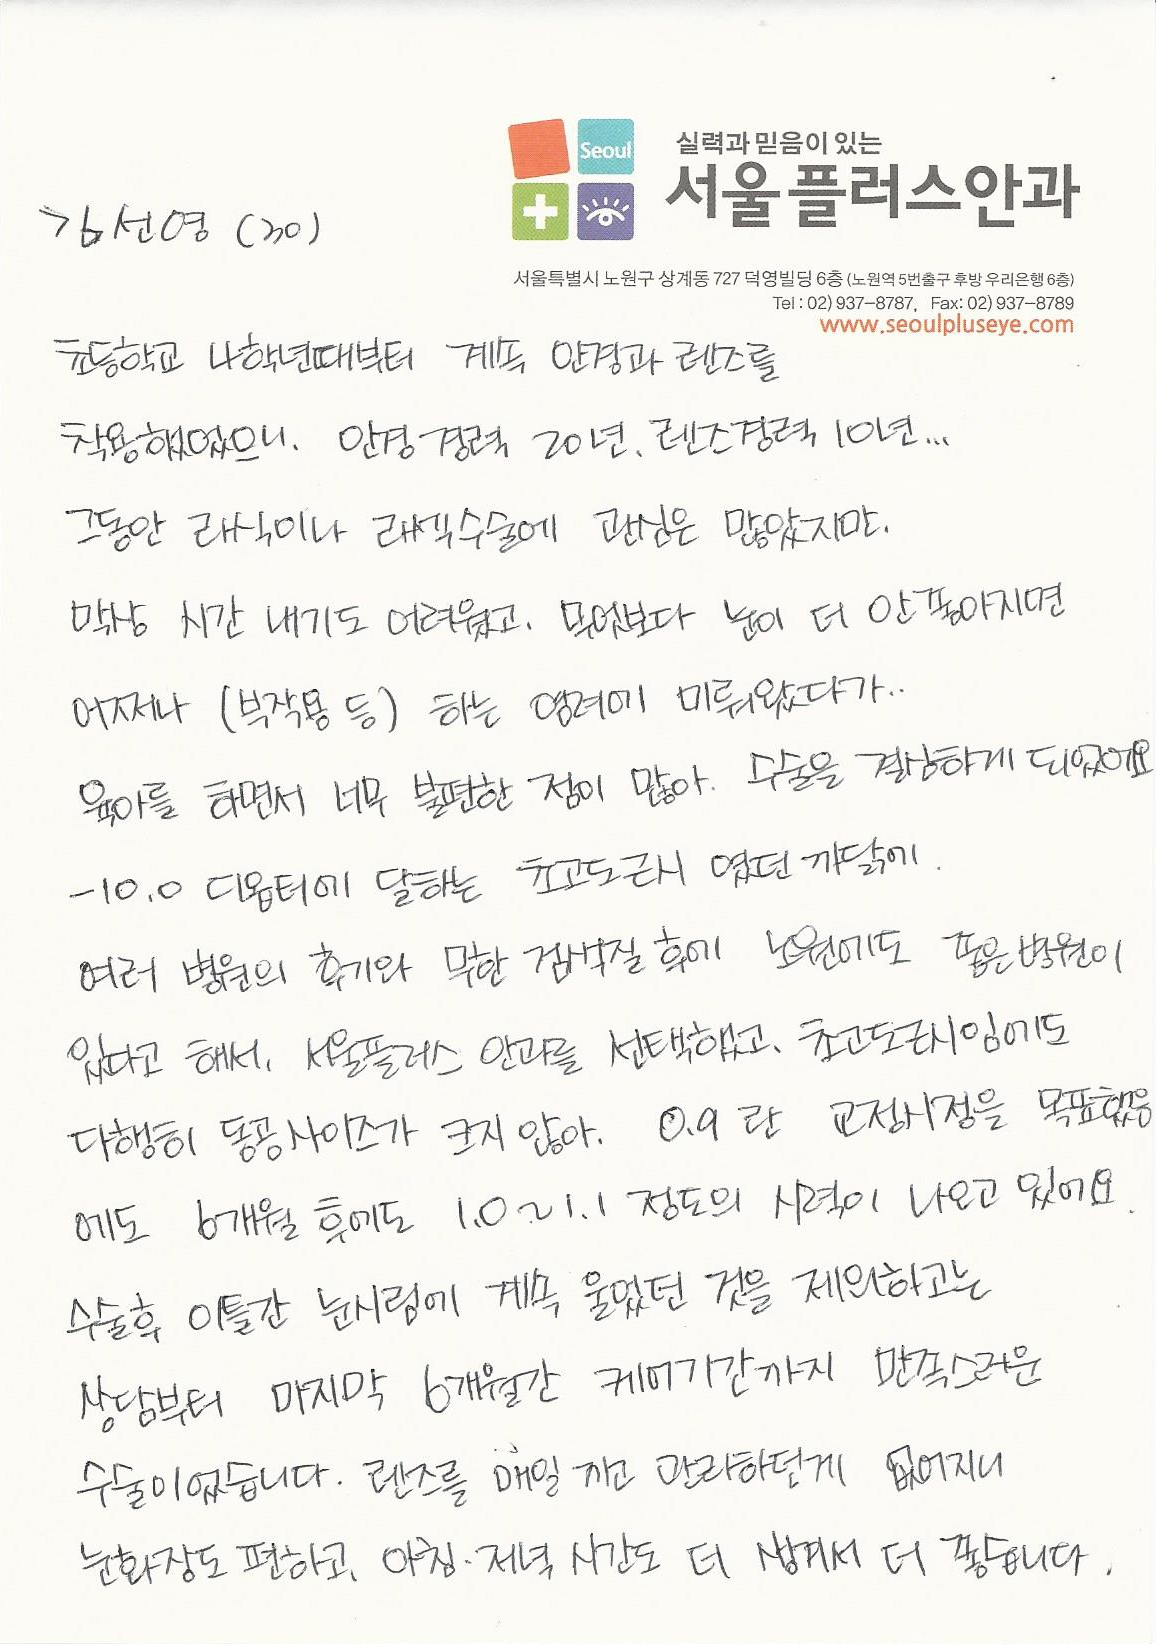 Seoul
실력과 믿음이 있는
서울플러스안과
김선영 (30)
서울특별시 노원구 상계동 727 덕영빌딩 6층 (노원역 5번출구 후방 우리은행 6층)
Tel : 02) 937-8787, Fax: 02) 937-8789
www.seoulpluseye.com
초등학교 4학년때부터 계속 안경과 렌즈를
착용했었으니. 안경경력 20년, 렌즈경력 10년...
그동안 라식이나 라섹수술에 관심은 많았지만.
막상 시간 내기도 어려웠고. 무엇보다 눈이 더 안좋아지면
어쩌나 (부작용 등) 하는 염려에 미뤄왔다가..
육아를 하면서 너무 불편한 점이 많아. 수술을 결심하게 되었어요
-10.0 디옵터에 달하는 초고도근시 였던 까닭에.
여러 병원의 후기와 무한 검색질 후에 노원에도 좋은병원이
있다고 해서. 서울플러스 안과를 선택했고. 초고도근시임에도
다행히 동공사이즈가 크지 않아. 0.9 란 교정시정을 목표했음
에도 6개월 후에도 1.0~1.1 정도의 시력이 나오고 있어요.
수술후 이틀간 눈시림에 계속 울었던 것을 제외하고는
상담부터 마지막 6개월간 케어기간까지 만족스러운
수술이었습니다. 렌즈를 매일 끼고 관리하던게 없어지니
눈화장도 편하고, 아침·저녁 시간도 더 생겨서 더 좋습니다.